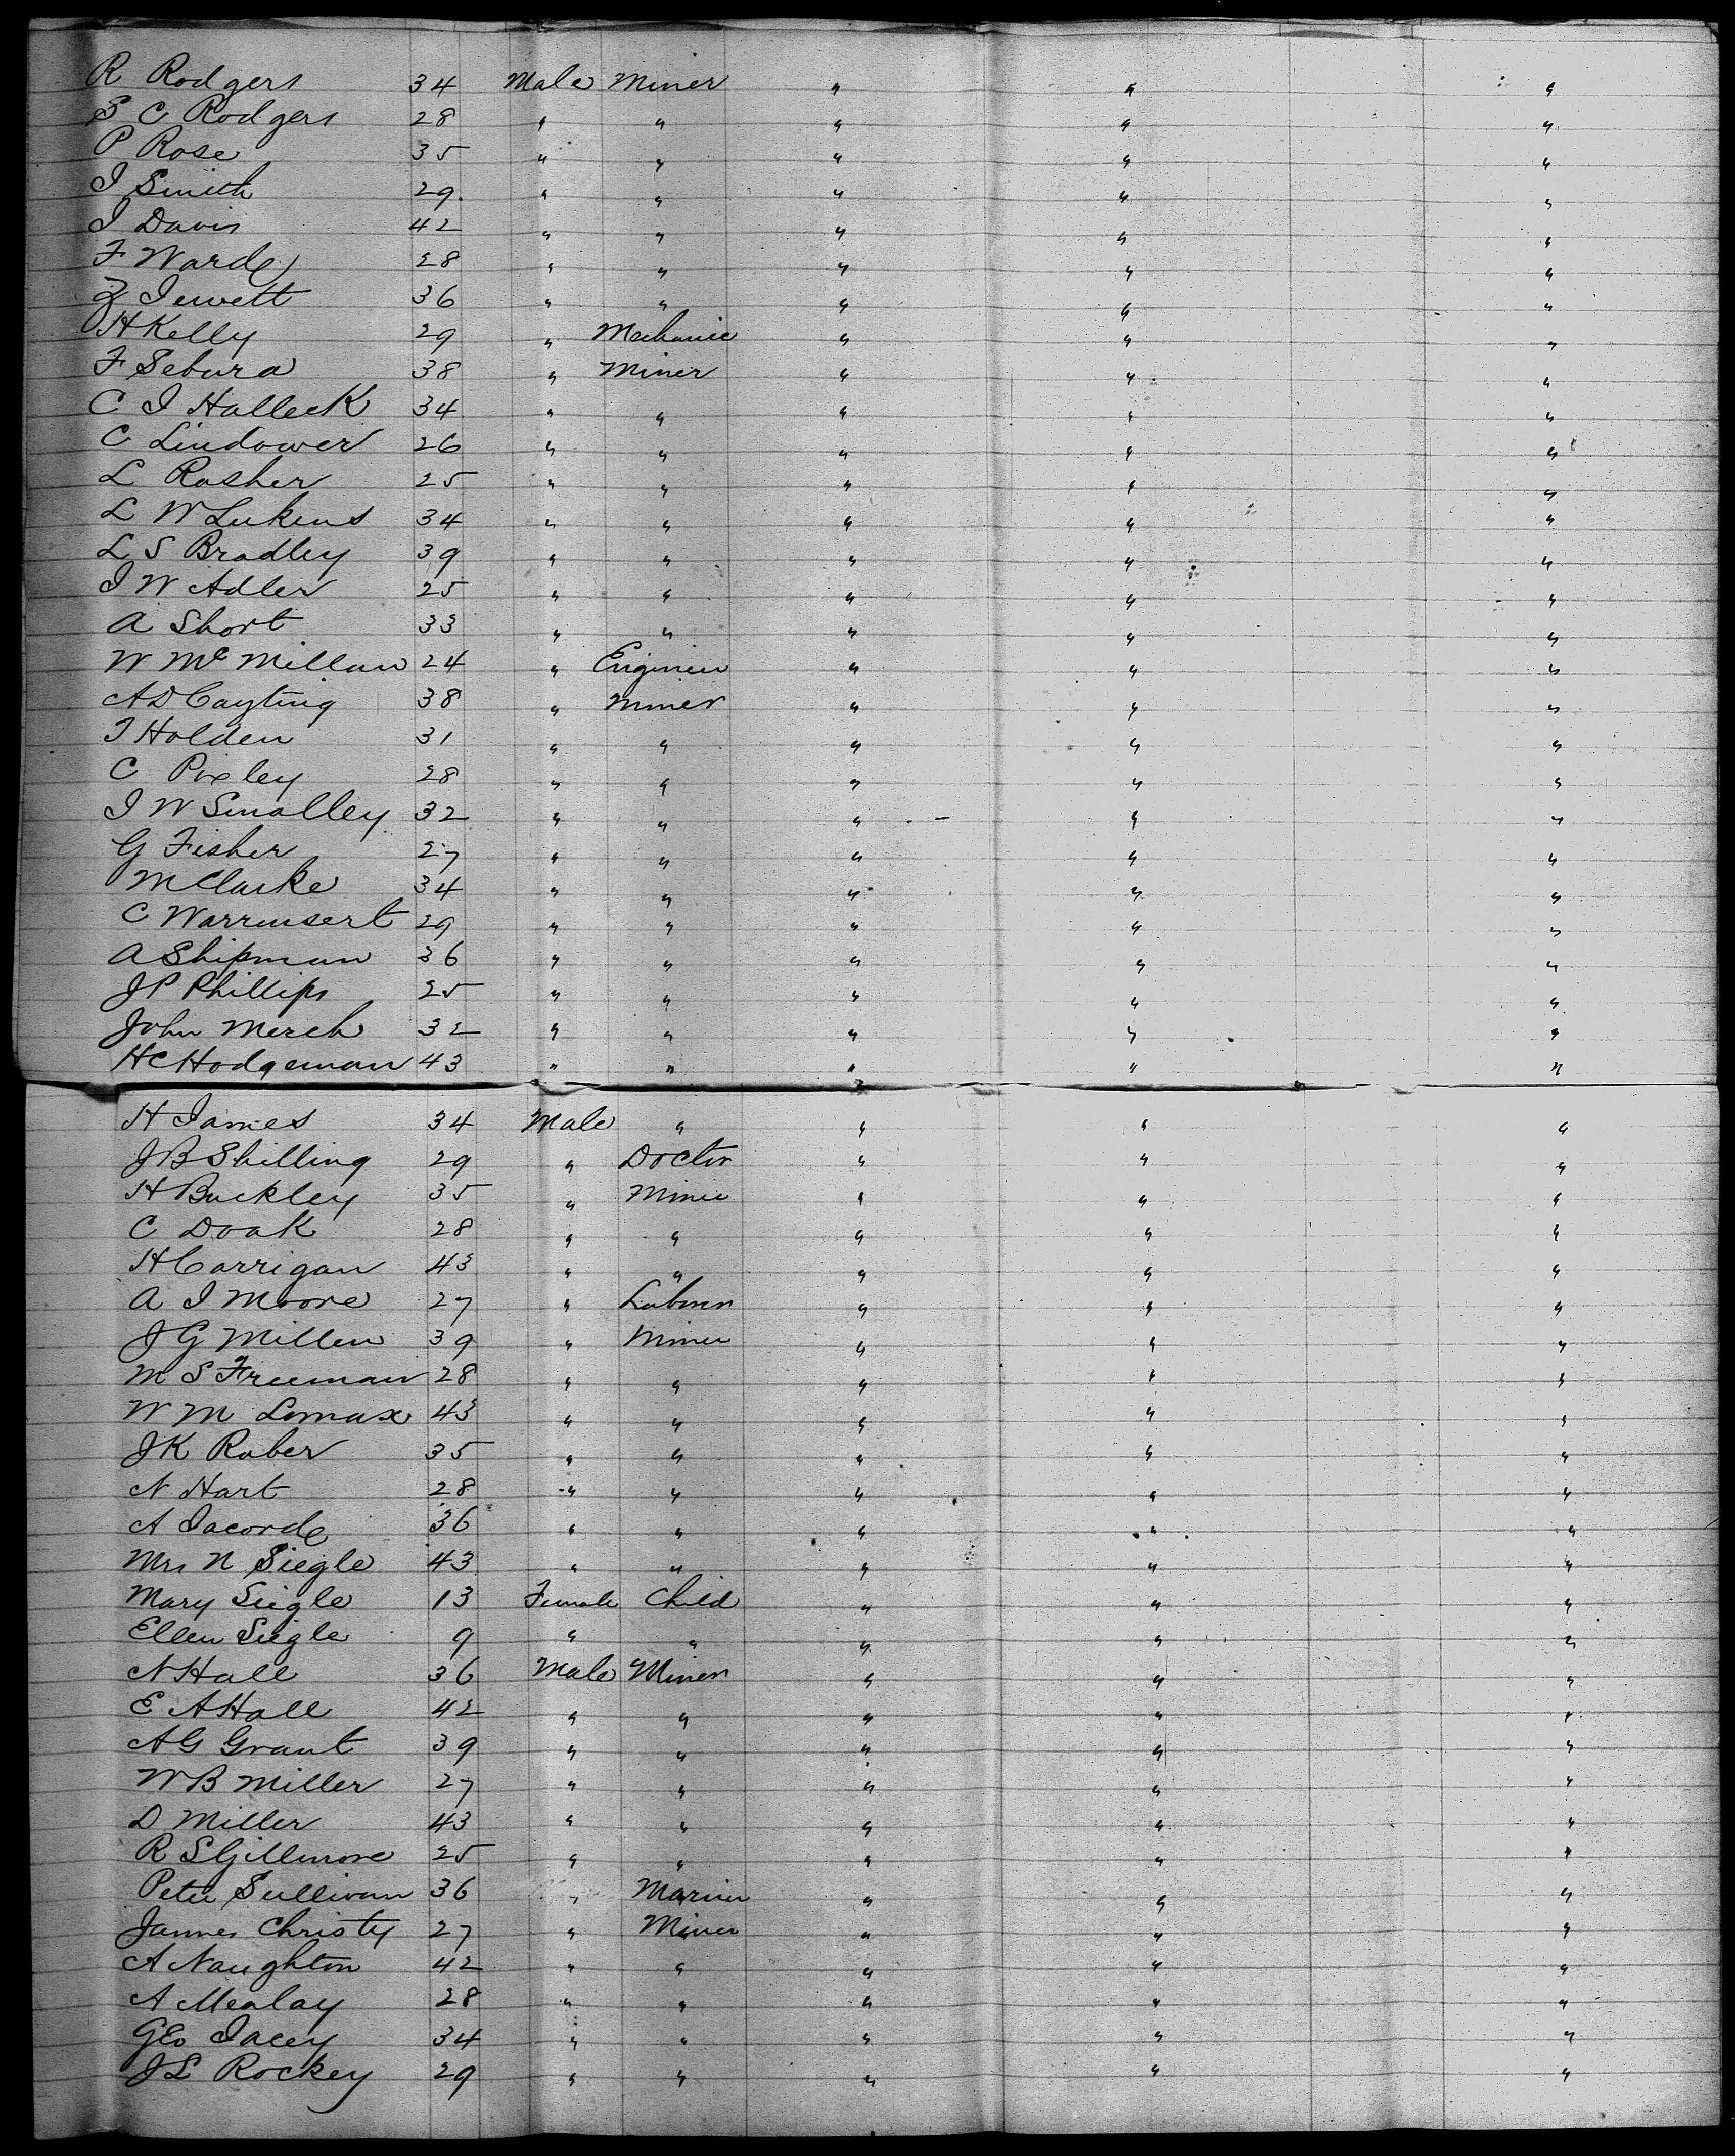 R Rodgers 34 Male Miner " " "
S C Rodgers 28 " " " " "
P Rose 35 " " " " "
I Smith 29 " " " " "
I Davis 42 " " " " "
F Warde 28 " " " " "
Z Jewett 36 " " " " "
H Kelly 29 " Mechanic " " "
F Sebura 38 " Miner " " "
C I Halleck 34 " " " " "
C Lindower 26 " " " " "
L Rosher 25 " " " " "
L W Lukens 34 " " " " "
L S Bradley 39 " " " " "
I W Adler 25 " " " " "
A Short 33 " " " " "
W McMillan 24 " Engineer " " "
A D Cayting 38 " Miner " " "
T Holden 31 " " " " "
C Pixley 28 " " " " "
I W Smalley 32 " " " " "
G Fisher 27 " " " " "
M Clarke 34 " " " " "
C Warrensert 29 " " " " "
A Shipman 36 " " " " "
J P Phillips 25 " " " " "
John Merch 32 " " " " "
H C Hodgeman 43 " " " " "
H James 34 Male " " " "
J B Shilling 29 " Doctor " " "
H Buckley 35 " Miner " " "
C Doak 28 " " " " "
H Carrigan 43 " " " " "
A I Moore 27 " Laborer " " "
J G Millen 39 " Miner " " "
M S Freeman 28 " " " " "
W M Lomax 43 " " " " "
J K Raber 35 " " " " "
N Hart 28 " " " " "
A Jacorde 36 " " " " "
Mrs N Siegle 43 " " " " "
Mary Siegle 13 Female Child " " "
Ellen Siegle 9 " " " " "
N Hall 36 Male Miner " " "
E A Hall 42 " " " " "
A G Grant 39 " " " " "
W B Miller 27 " " " " "
D Miller 43 " " " " "
R S Gillmore 25 " " " " "
Peter Sullivan 36 " Mariner " " "
James Christy 27 " Miner " " "
A Naughton 42 " " " " "
A Mealay 28 " " " " "
Geo Jacey 34 " " " " "
J L Rockey 29 " " " " "